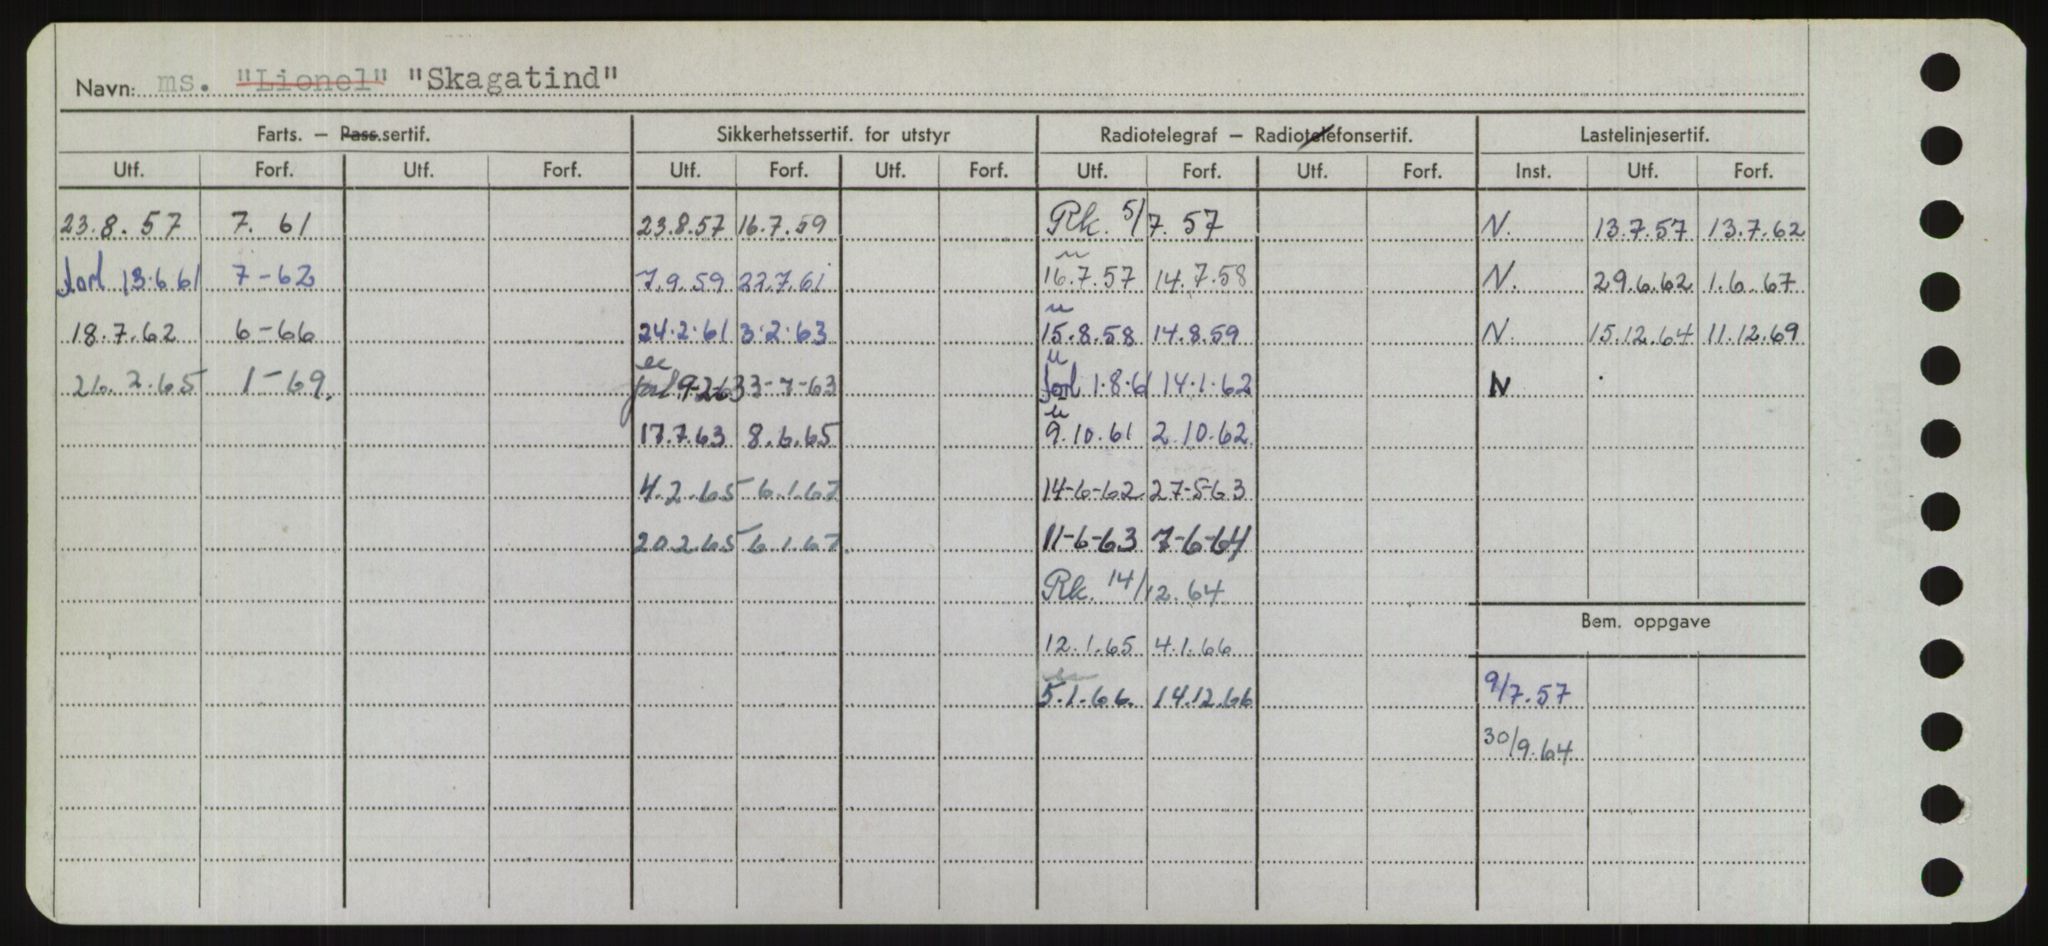 Navn: ms. "Lionel" "Skagatind"
Farts. – Pass.sertif. Sikkerhetssertif. for utstyr Radiotelegraf – Radiotelefonsertif. Lastelinjesertif.
Utf. Forf. Utf. Forf. Utf. Forf. Utf. Forf. Utf. Forf. Utf. Forf. Inst. Utf. Forf.
23.8.57 7. 61 23.8.57 16.7.59 Rk. 5/7. 57 N. 13.7.57 13.7.62
forl 13.6 61 7-62 7.9.59 22.7.61 16.7.57 14.7.58 N. 29.6.62 1.6.67
18.7.62 6-66 24.2.61 3.2.63 15.8.58 14.8.59 N. 15.12.64 11.12.69
26.2.65 1-69. forl 9-2-63 3-7-63 forl 1.8.61 14.1.62 N
17.7.63 8.6.65 9.10.61 2.10.62
4.2.65 6.1.67 14-6-62 27-5-63
20.2.65 6.1.67 11-6-63 7-6-64
Rk. 14/12.64
Bem. oppgave
12.1.65 4.1.66
5.1.66. 14.12.66 9/7.57
30/9.64